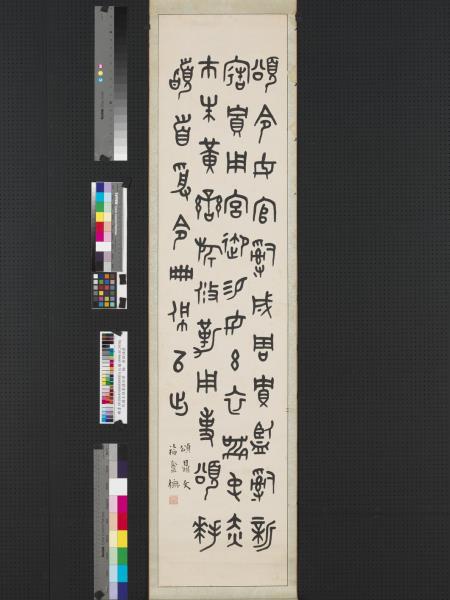 頌令女官𤔲成周貯監𤔲新
造貯用宮御易女玄衣黹屯赤
巿朱黃䜌旂攸勒用事頌拜
𩒨首受令冊佩以出
頌鼎文
福盦橅